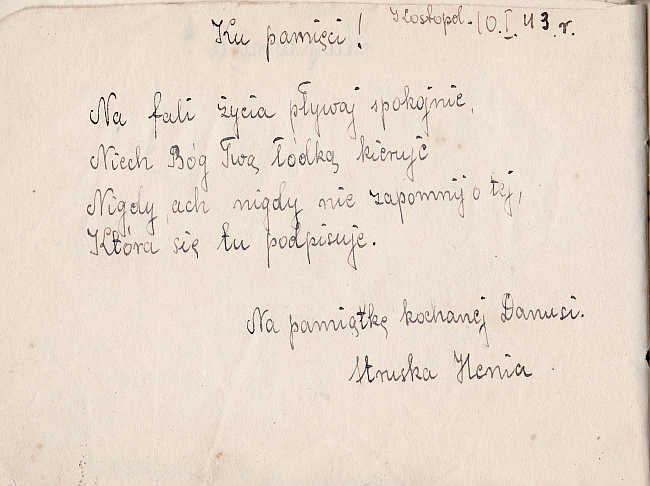 Ku pamięci! Kostopol. 10.I.43.r.
Na fali życia pływaj spokojnie,
Niech Bóg Twą łodką kieruje
Nigdy, ach nigdy nie zapomnij o tej,
Która się tu podpisuje.
Na pamiątkę kochanej Danusi.
Struska Henia